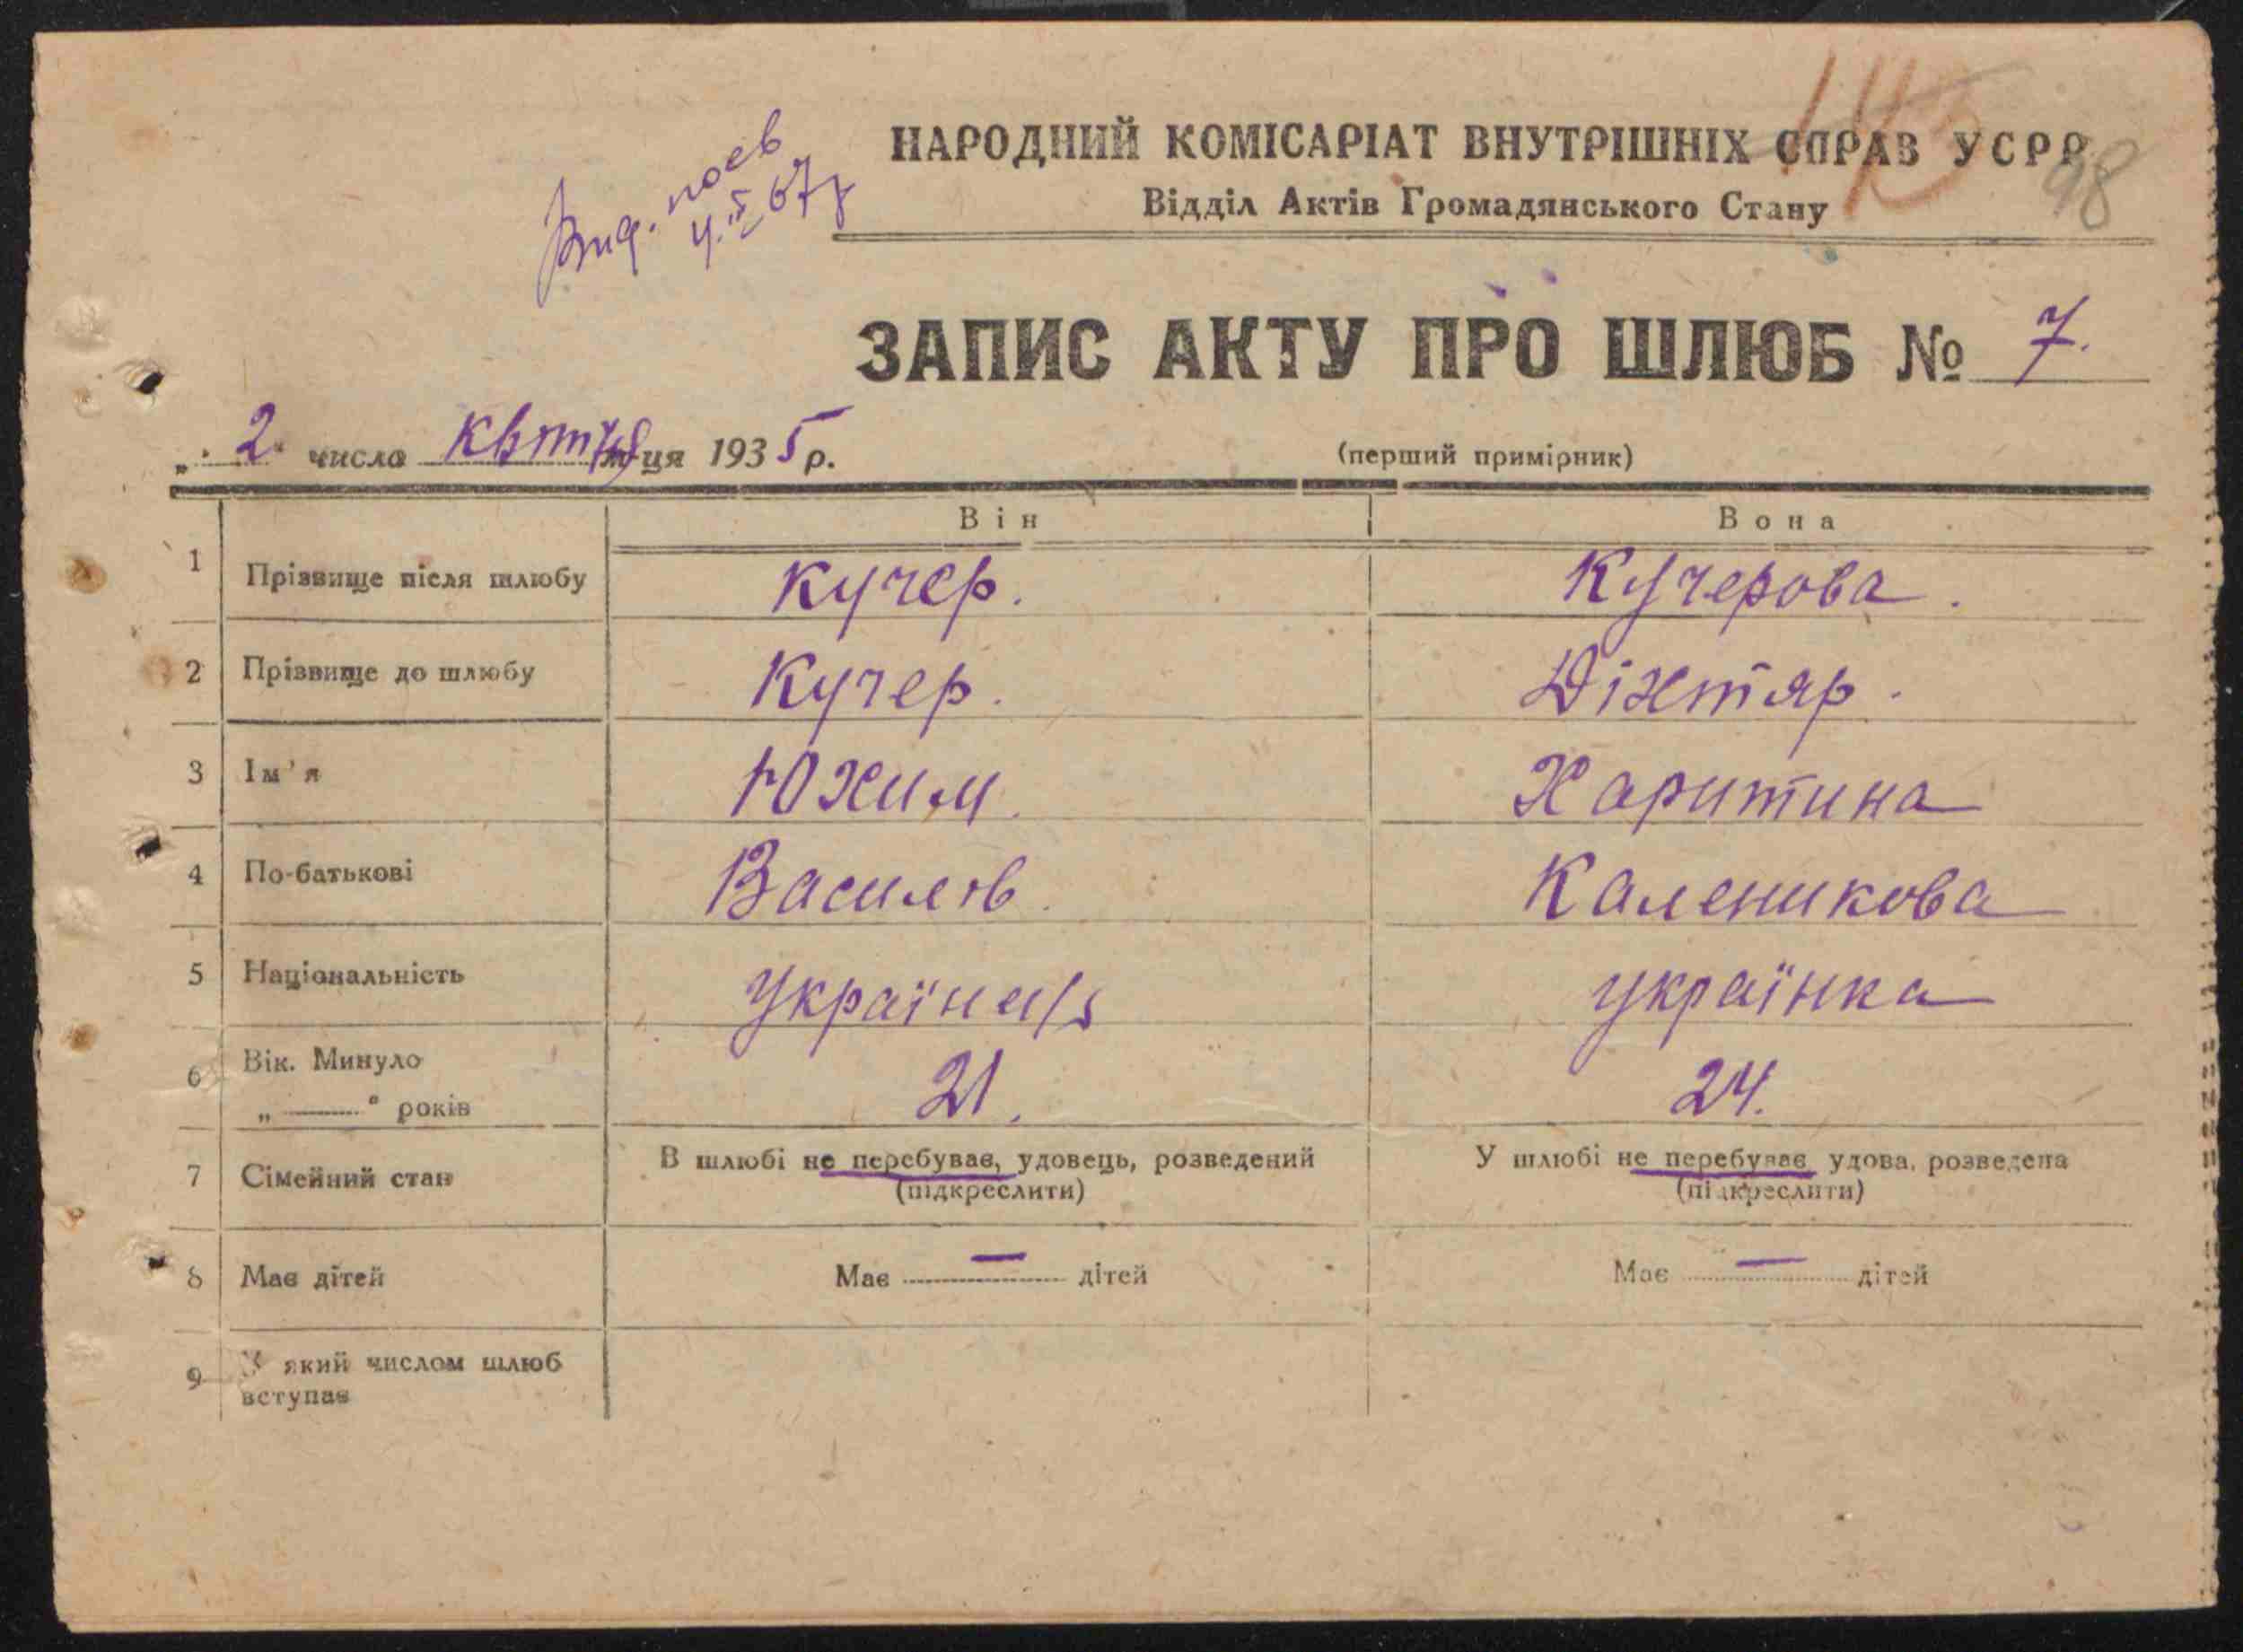 145
98
Вид.
4.V 67г
НАРОДНИЙ КОМІСАРІАТ ВНУТРІШНІХ СПРАВ УСРР
Відділ Актів Громадянського Стану
ЗАПИС АКТУ ПРО ШЛЮБ № 7.
„ 2 числа квітня ця 1935 р. (перший примірник)
Він Вона
1 Прізвище після шлюбу Кучер. Кучерова.
2 Прізвище до шлюбу Кучер. Діхтяр.
3 Ім'я Юхим. Харитина
4 По-батькові Василів. Каленикова
5 Національність Українець Українка
6 Вік. Минуло
„ “ років 21. 24.
7 Сімейний стан В шлюбі не перебуває, удовець, розведений У шлюбі не перебуває удова, розведена
(підкреслити) (підкреслити)
8 Має дітей Має — дітей Має — дітей
9 У який числом шлюб
вступає